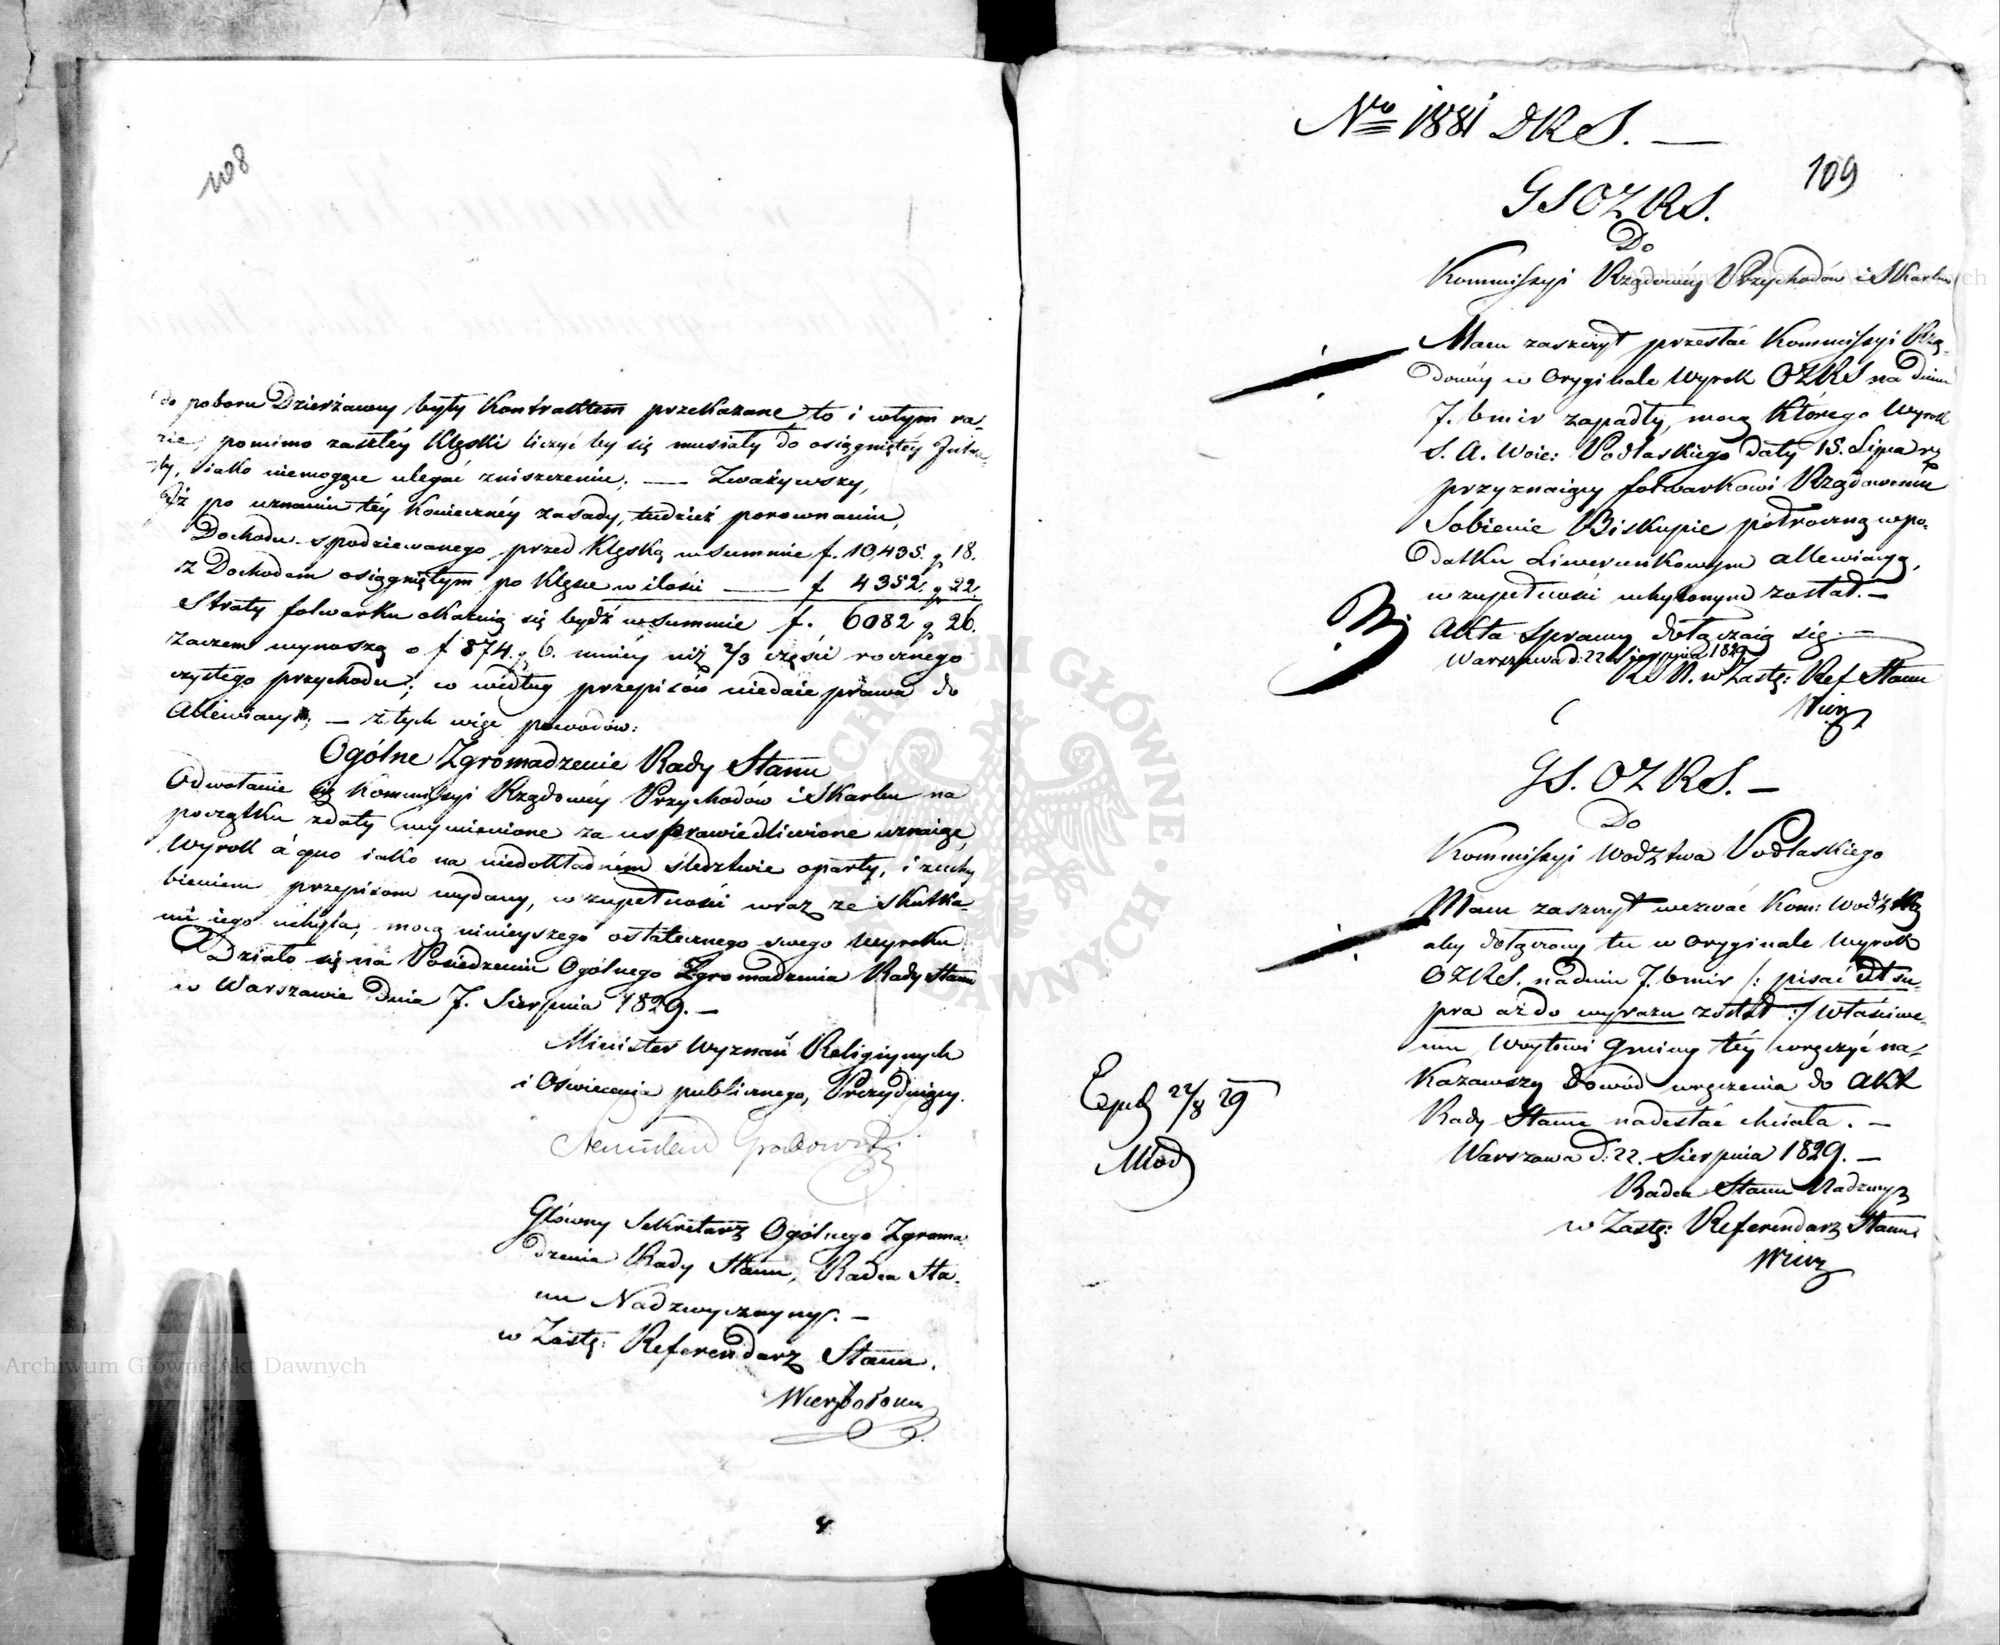 108
do poboru Dzierżawny były Kontraktem przekazane, to i wtym ra-
zie, pomimo zaszłéy Klęski liczyć by się musiały do osiągniętéy Intra-
ty, iako niemogące ulegać zniszczeniu; — Zważywszy,
iż po uznaniu téy Koniecznéy zasady, tudzież porownaniu,
Dochodu spodziewanego przed Klęską w summie f. 10,435. g 18.
z Dochodem osiągniętym po Klęsce w ilości — f 4352. g 22.
Straty folwarku okazuią się bydź w summie f. 6082 g 26.
zaczem wynoszą o f 874. g 6. mniéy niż 2/3 części rocznego
czystego przychodu; co według przepisów niedaie prawa do
Allewiacyi; — z tych więc powodów:
Ogólne Zgromadzenie Rady Stanu
Odwołanie się Kommissyi Rządowéy Przychodów i Skarbu na
początku zdaty wymienione za usprawiedliwione uznaiąc,
Wyrok à quo iako na niedokładném śledztwie oparty, i z uchy
bieniem przepisom wydany, w zupełności wraz ze skutka-
mi iego uchyla, mocą ninieyszego ostatecznego swego Wyroku
Działo się na Posiedzeniu Ogólnego Zgromadzenia Rady Stanu
w Warszawie Dnia 7. Sierpnia 1829. —
Minister Wyznań Religiynych
i Oświecenia publicznego, Prezyduiący.
Stanisław Grabowski
Główny Sekretarz Ogólnego Zgroma
dzenia Rady Stanu, Radca Sta-
nu Nadzwyczayny. —
w Zastę: Referendarz Stanu.
Nro 1881 DRS. —
109
GSOZRS.
Do
Kommissyi Rządowéy Przychodów i Skarbu
Mam zaszczyt przesłać Kommissyi Rzą-
dowéy w Oryginale Wyrok OZRS na dniu
7. bmir zapadły, mocą Którego Wyrok
S. A. Woie: Podlaskiego daty 15. Lipca rz
przyznaiący folwarkowi Rządowemu
Sobienie Biskupie półroczną w po-
datku Liwerunkowym allewiacyą,
w zupełności uchylonym został. —
Akta Sprawy dołączaią się. —
Warszawa d. 22 Sierpnia 1829
R. S. N. w Zastę: Ref Stanu
Wierz
GS. OZRS. —
Do
Kommissyi Wodztwa Podlaskiego
Mam zaszczyt wezwać Kom: Wodzką
aby dołączony tu w Oryginale Wyrok
OZRS. na dniu 7. bmir /: pisać ut su-
pra aż do wyrazu został :/ właściwe-
mu Wóytowi Gminy téy wręczyć na-
Kazawszy Dowód wręczenia do Akt
Rady Stanu nadesłać chciała. —
Warszawa d: 22. Sierpnia 1829. —
Radca Stanu Nadzwycz
w Zastę: Referendarz Stanu
Wierz
Exped 22/8 29
Młod
Archiwum Główne Akt Dawnych